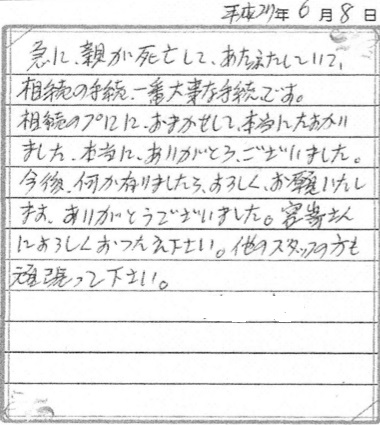 平成27年 6月 8日
急に、親が死亡して、あたふたしていて、
相続の手続、一番大事な手続です。
相続のプロに、おまかせして、本当にたおかり
ました、本当に、ありがとう、ございました。
今後、何か有りましたら、よろしく、お願いいたし
ます、ありがとうございました。さん
によろしくおつたえ下さい。他のスタッフの方も
頑張って下さい。